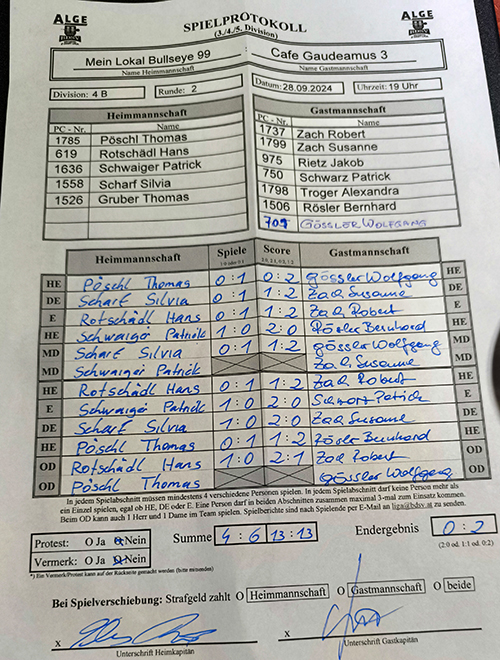 ALGE SPIELPROTOKOLL ALGE
(3./4./5. Division)
Mein Lokal Bullseye 99 Cafe Gaudeamus 3
Name Heimmannschaft Name Gastmannschaft
Division: 4 B Runde: 2 Datum: 28.09.2024 Uhrzeit: 19 Uhr
Heimmannschaft Gastmannschaft
PC - Nr. Name PC - Nr. Name
1785 Pöschl Thomas 1737 Zach Robert
619 Rotschädl Hans 1799 Zach Susanne
1636 Schwaiger Patrick 975 Rietz Jakob
1558 Scharf Silvia 750 Schwarz Patrick
1526 Gruber Thomas 1798 Troger Alexandra
1506 Rösler Bernhard
709 GÖSSLER WOLFGANG
Heimmannschaft Spiele Score Gastmannschaft
1:0 oder 0:1 2:0, 2:1, 0:2, 1:2
HE Pöschl Thomas 0:1 0:2 Gössler Wolfgang HE
DE Scharf Silvia 0:1 1:2 Zach Susanne DE
E Rotschädl Hans 0:1 1:2 Zach Robert E
HE Schwaiger Patrick 1:0 2:0 Rösler Bernhard HE
MD Scharf Silvia 0:1 1:2 Gössler Wolfgang MD
MD Schwaiger Patrick Zach Susanne MD
HE Rotschädl Hans 0:1 1:2 Zach Robert HE
E Schwaiger Patrick 1:0 2:0 Schwarz Patrick E
DE Scharf Silvia 1:0 2:0 Zach Susanne DE
HE Pöschl Thomas 0:1 1:2 Rösler Bernhard HE
OD Rotschädl Hans 1:0 2:1 Zach Robert OD
OD Pöschl Thomas Gössler Wolfgang OD
In jedem Spielabschnitt müssen mindestens 4 verschiedene Personen spielen. In jedem Spielabschnitt darf keine Person mehr als
ein Einzel spielen, egal ob HE, DE oder E. Eine Person darf in beiden Abschnitten zusammen maximal 3-mal zum Einsatz kommen.
Beim OD kann auch 1 Herr und 1 Dame im Team spielen. Spielberichte sind nach Spielende per E-Mail an liga@bdsv.at zu senden.
Protest: O Ja O Nein Summe 4:6 13:13 Endergebnis 0:2
Vermerk: O Ja O Nein (2:0 od. 1:1 od. 0:2)
*) Ein Vermerk/Protest kann auf der Rückseite gemacht werden (bitte mitsenden)
Bei Spielverschiebung: Strafgeld zahlt O Heimmannschaft O Gastmannschaft O beide
x x
Unterschrift Heimkapitän Unterschrift Gastkapitän